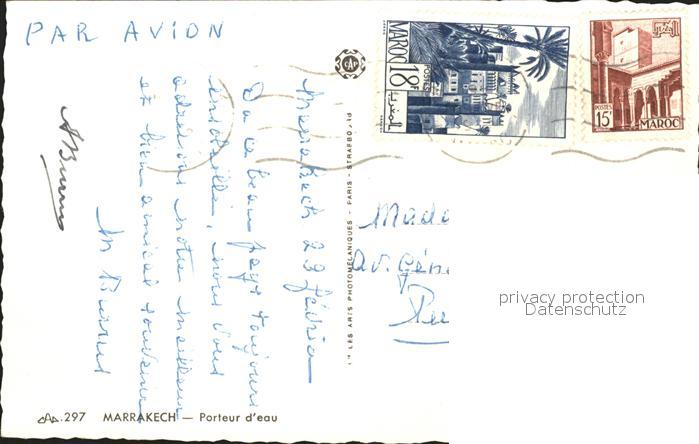 PAR AVION
MAROC
18F
POSTES
المغرب
POSTES
15F
MAROC
Marrakech 23 février
De ce beau pays toujours
ensoleillé, nous vous
adressons notre meilleur
et bien amical souvenir
Mada
Av. Géné
LES ARTS PHOTOMÉCANIQUES - PARIS - STRAFBO
privacy protection
Datenschutz
297 MARRAKECH — Porteur d'eau